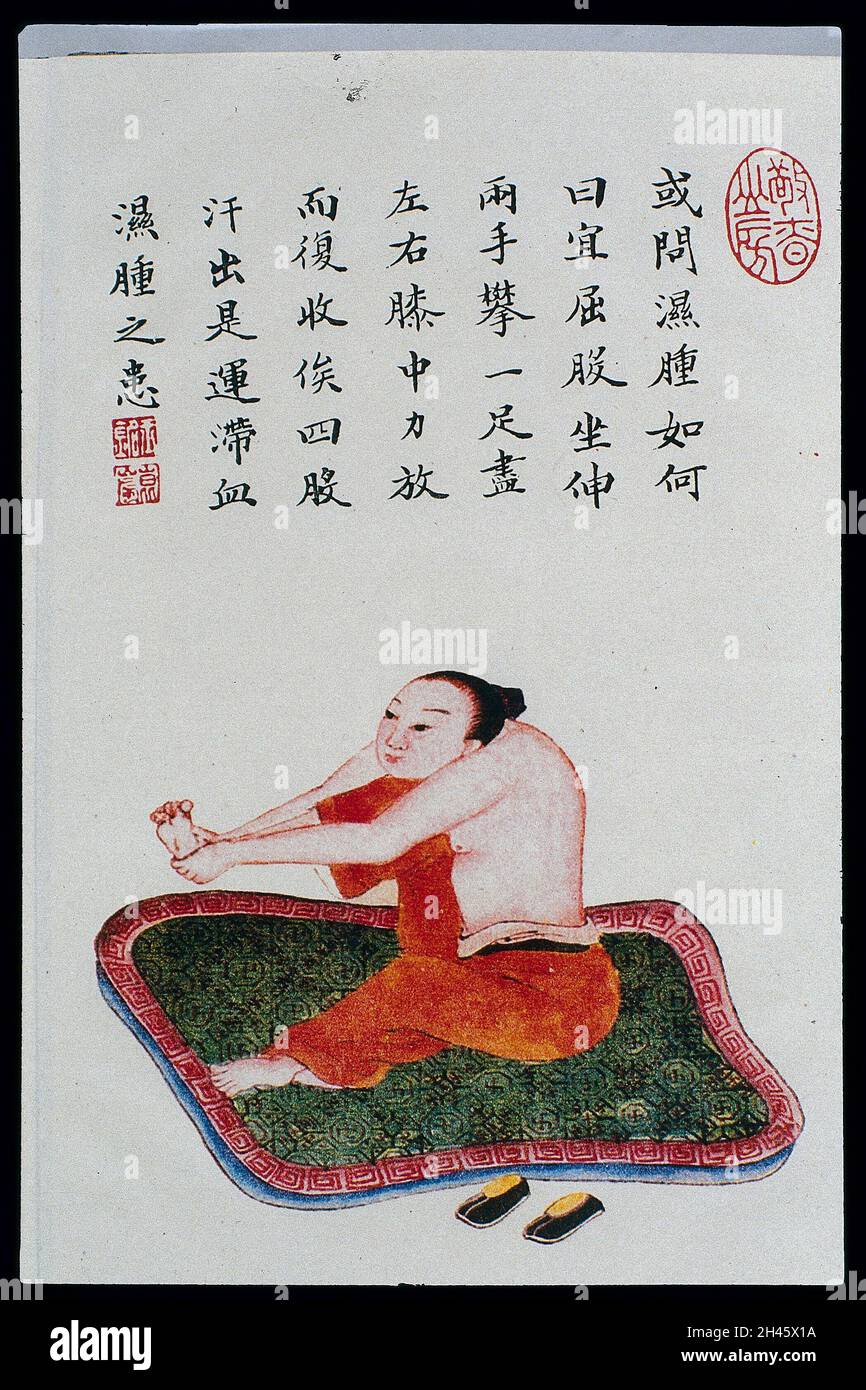 或問濕腫如何
曰宜屈股坐伸
兩手攀一足盡
左右膝中力放
而復收俟四股
汗出是運滯血
濕腫之患
alamy
Image ID: 2H45X1A
www.alamy.com